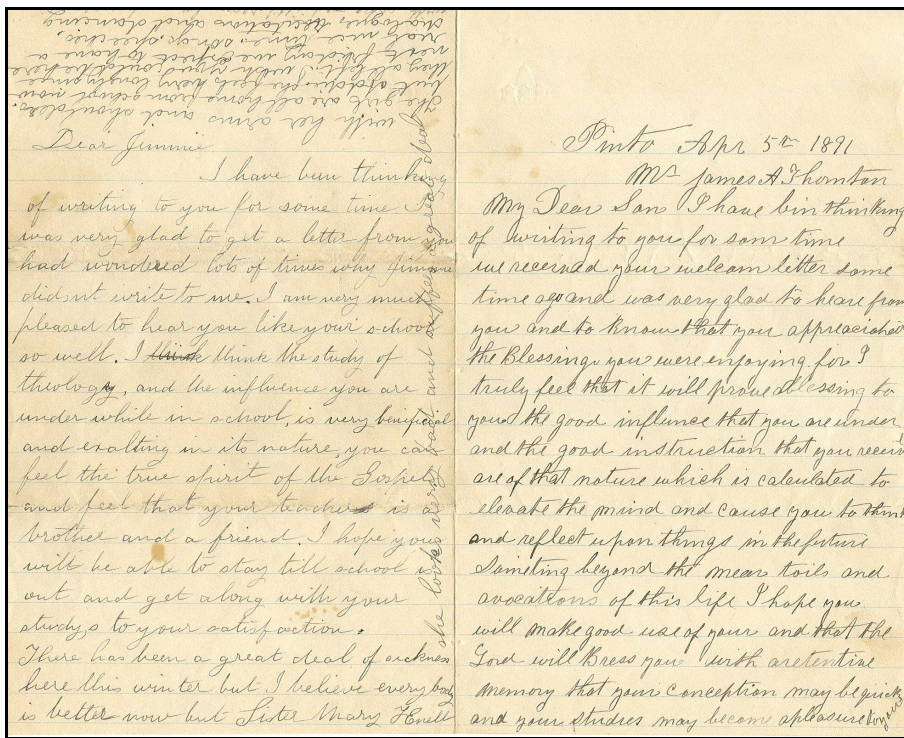 Dear Jimmie.
I have been thinking
of writing to you for some time. I
was very glad to get a letter from you
had wondered lots of times why Jimmie
did,nt write to me. I am very much
pleased to hear you like your school
so well. I think think the study of
theology, and the influence you are
under while in school, is very benificial
and exalting in its nature, you can
feel the true spirit of the Gospel,
and feel that your teacher is
brother and a friend. I hope you
will be able to stay till school is
out and get along with your
studys to your satisfaction.
There has been a great deal of sickness
here this winter but I believe every body
is better now but Sister Mary
she looks very bad and suffers a great deal
with her arms and shoulders.
The girls are all home from school now
but Addie. She feels very lonely since
they all left. I wish you could be here
next Friday we expect to have a
real nice time. songs, speeches,
dialogues recitations and dancing
Pinto Apr 5th 1891
Mr James A Thornton
My Dear Son I have bin thinking
of writing to you for som time
we received your welcam letter some
time ago and was very glad to heare from
you and to know that you appreaciated
the Blessings you were enjoying for I
truly feel that it will prove a blessing to
you the good influnce that you are under
and the good instruction that you receive
are of that nature which is calculated to
elevate the mind and cause you to think
and reflect upon things in the future
Someting beyond the mear toils and
avocations of this life I hope you
will make good use of your and that the
Lord will Bress you with a retentive
memory that your conception may be quick
and your studies may become a pleasure to you